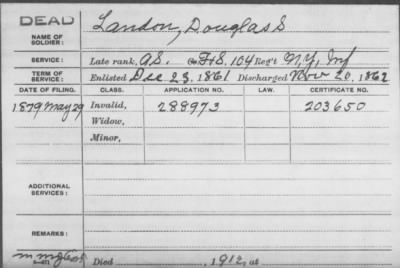 DEAD
NAME OF SOLDIER: Landon, Douglass
SERVICE: Late rank, A.S. Co. F&S, 104 Reg't N.Y. Inf
TERM OF SERVICE: Enlisted Dec 23, 1861 Discharged Nov 20, 1862
DATE OF FILING. CLASS. APPLICATION NO. LAW. CERTIFICATE NO.
1879 May 29 Invalid, 288973 203650
Widow,
Minor,
ADDITIONAL SERVICES:
REMARKS:
Died , 1912, at